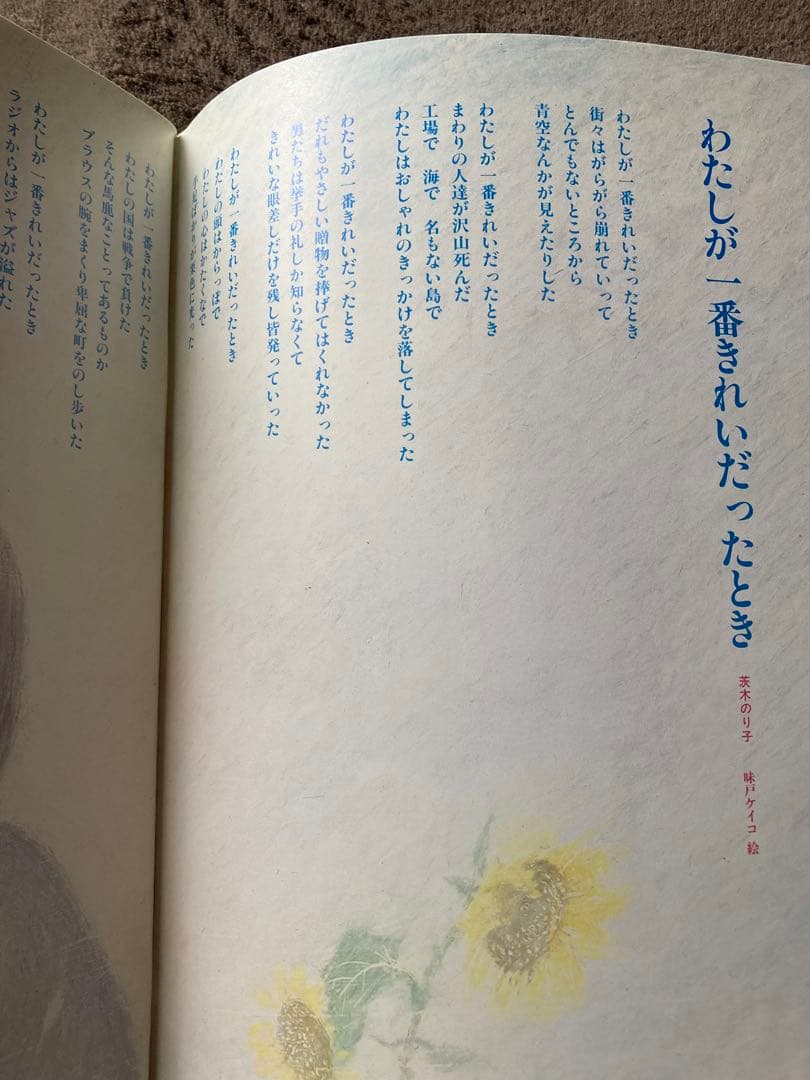 わたしが一番きれいだったとき
茨木のり子
味戸ケイコ 絵
わたしが一番きれいだったとき
街々はがらがら崩れていって
とんでもないところから
青空なんかが見えたりした
わたしが一番きれいだったとき
まわりの人達が沢山死んだ
工場で 海で 名もない島で
わたしはおしゃれのきっかけを落してしまった
わたしが一番きれいだったとき
だれもやさしい贈物を捧げてはくれなかった
男たちは挙手の礼しか知らなくて
きれいな眼差しだけを残し皆発っていった
わたしが一番きれいだったとき
わたしの頭はからっぽで
わたしの心はかたくなで
手足ばかりが栗色に光った
わたしが一番きれいだったとき
わたしの国は戦争で負けた
そんな馬鹿なことってあるものか
ブラウスの腕をまくり卑屈な町をのし歩いた
わたしが一番きれいだったとき
ラジオからはジャズが溢れた